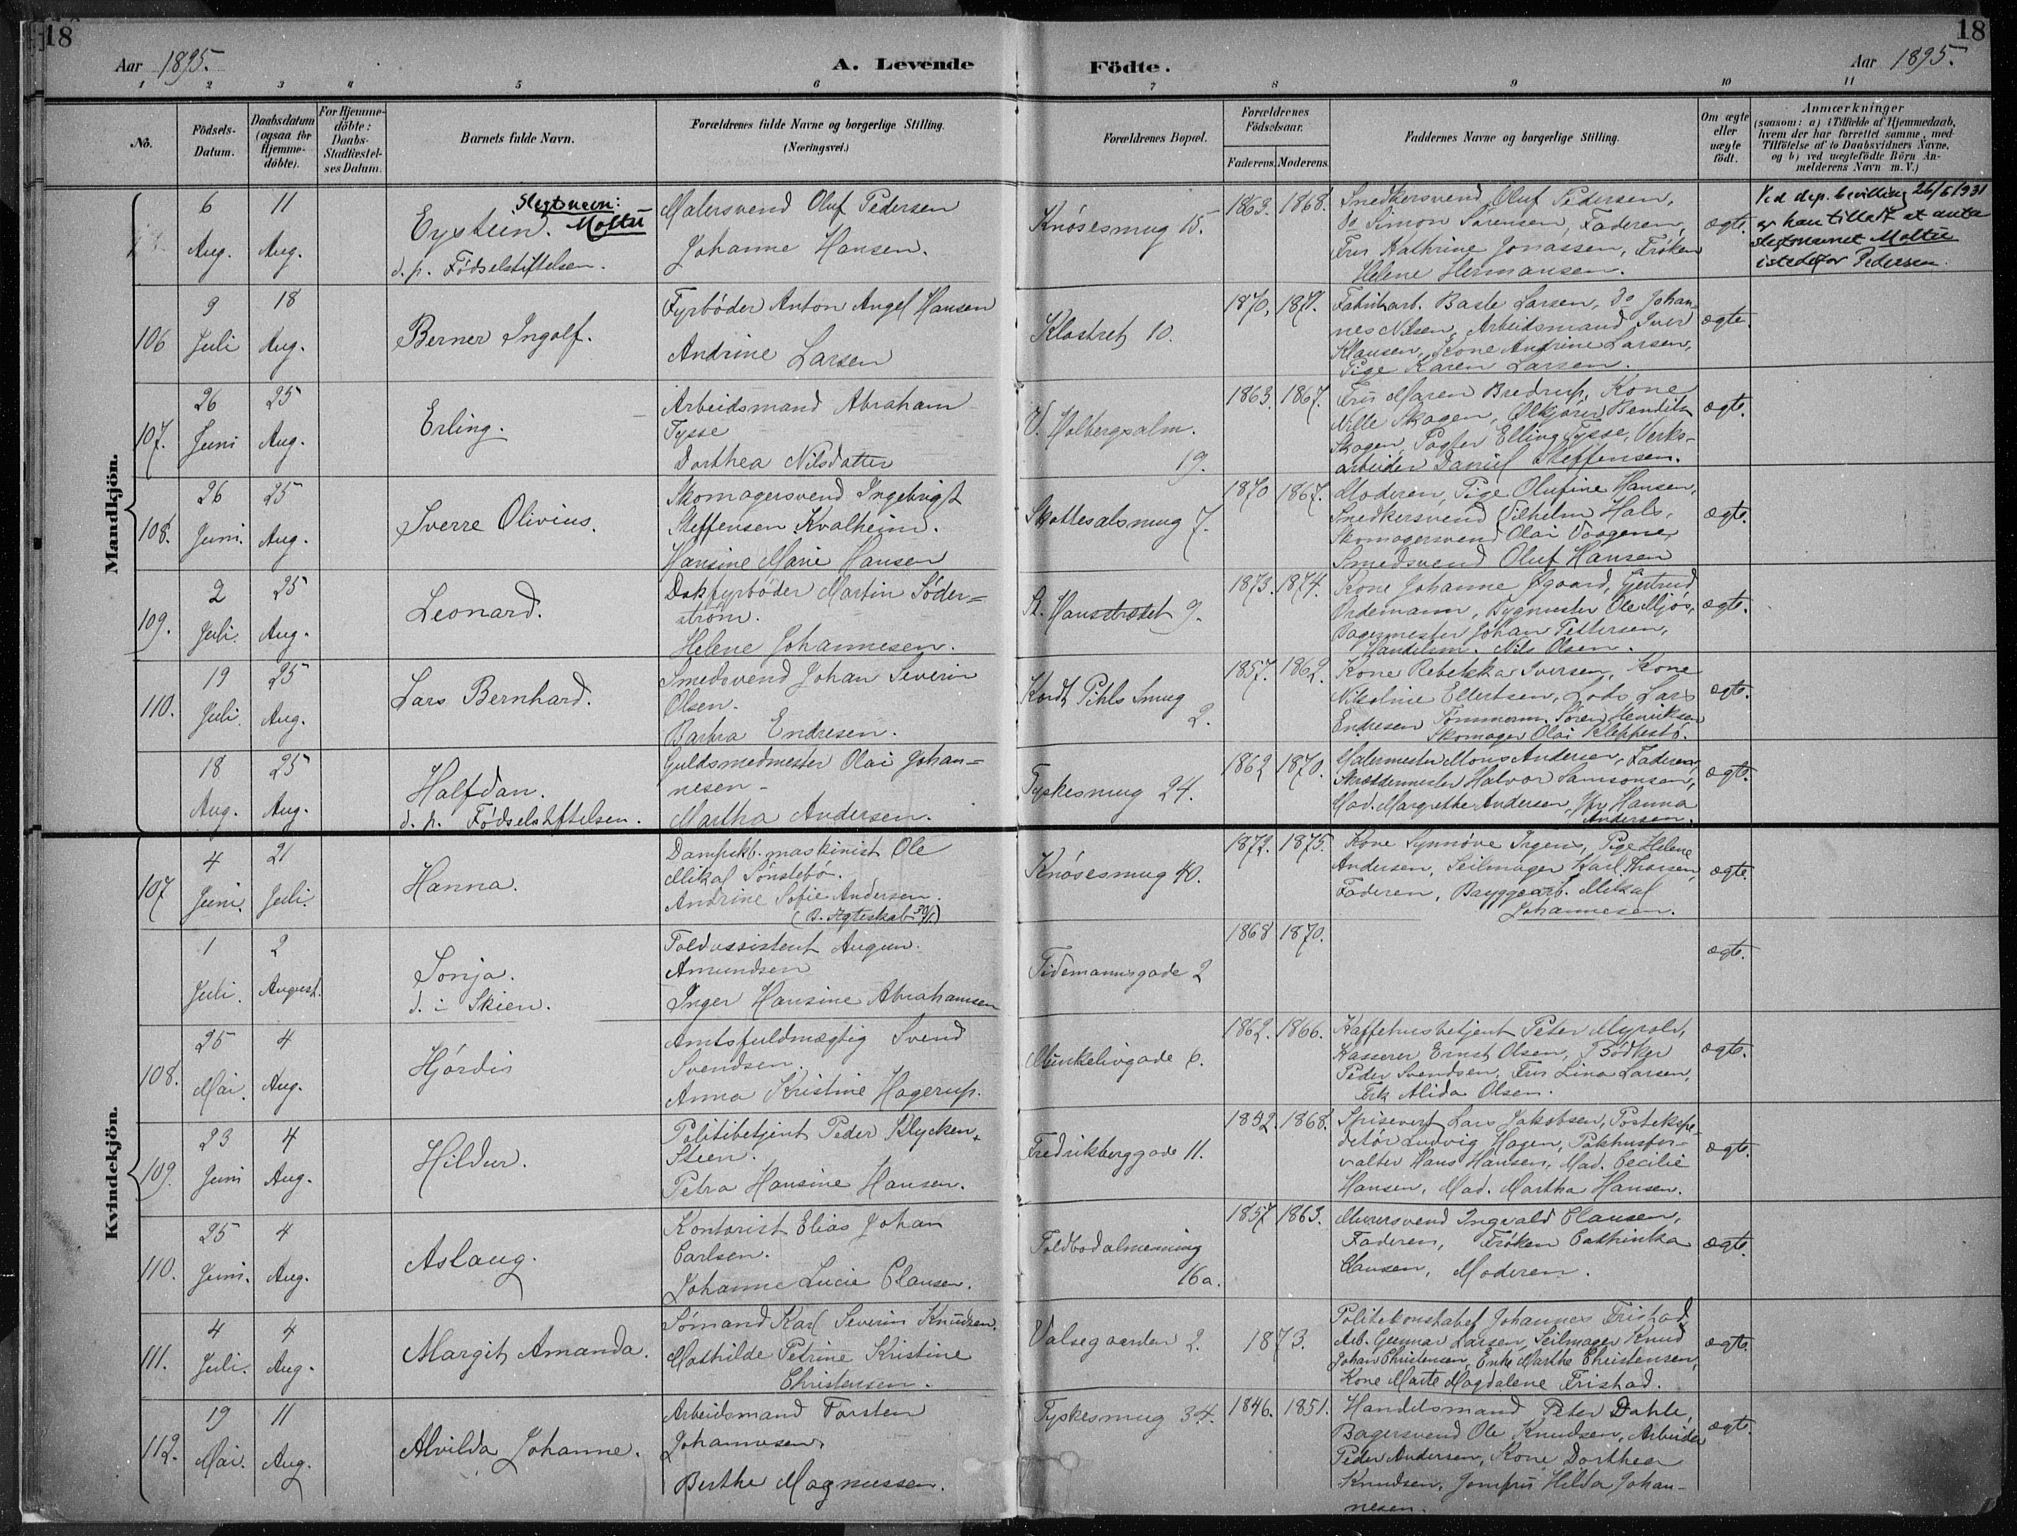 18
18
Aar 1895.
A. Levende
Födte.
Aar 1895.
1 2 3 4 5 6 7 8 9 10 11
No.
Födsels-Datum.
Daabsdatum (ogsaa for Hjemme-döbte).
For Hjemme-döbte: Daabs-Stadfæstel-ses Datum.
Barnets fulde Navn.
Forældrenes fulde Navne og borgerlige Stilling.
(Næringsvei.)
Forældrenes Bopæl.
Forældrenes Födselsaar.
Faderens. Moderens.
Faddernes Navne og borgerlige Stilling.
Om ægte eller uægte födt.
Anmærkninger
(saasom: a) i Tilfælde af Hjemmedaab, hvem der har forrettet samme, med Tilföielse af to Daabsvidners Navne, og b) ved uægtefödte Börn An-melderens Navn m. V.)
Mandkjön.
6 Aug.
11 Aug.
Slegtsnavn:
Eystein. Moltu
d. p. Fødselstiftelsen.
Malersvend Oluf Pedersen
Johanne Hansen.
Knøsesmug 15.
1863. 1868.
Snedkersvend Oluf Pedersen,
do Simon Sørensen, Faderen,
Frus Kathrine Jonassen, Frøken
Helene Hermansen.
ægte.
Ved dep. bevilling 26/6 1931
er han tilladt at anta
slegtsnavnet Moltu
istedefor Pedersen.
106
9 Juli
18 Aug.
Berner Ingolf.
Fyrbøder Anton Angel Hansen
Andrine Larsen
Klostret 10.
1870. 1871.
Fabrikarb. Baste Larsen, do Johan-
nes Nilsen, Arbeidsmand Iver
Klausen, Kone Andrine Larsen,
Pige Karen Larsen.
ægte.
107.
26 Juni
25 Aug.
Erling.
Arbeidsmand Abraham
Tysse
Dorthea Nilsdatter
V. Holbergsalm.
19.
1863. 1867.
Frus Maren Bredrup, Kone
Nille Skagen, Ølkjører Bendik
Skagen, Pagter Elling Tysse, Verks-
arbeider Daniel Steffensen.
ægte.
108.
26 Juni.
25 Aug.
Sverre Olivius.
Skomagersvend Ingebrigt
Steffensen Kvalheim.
Hansine Marie Hansen
Skottesalsmug 7.
1870 1867.
Moderen, Pige Olufine Hansen,
Snedkersvend Vilhelm Hals,
Skomagersvend Olai Vaagenes
Smedsvend Oluf Hansen
ægte.
109.
2 Juli.
25 Aug.
Leonard.
Dokfyrbøder Martin Söder-
strøm.
Helene Johannesen.
St. Hansstrædet 9.
1873. 1874.
Kone Johanne Øgaard, Gjertrud
Ordemann, Bygmester Ole Mjøs,
Bagermester Johan Pettersen,
Handelsm. Nils Olsen.
ægte.
110.
19 Juli.
25 Aug.
Lars Bernhard.
Smedsvend Johan Severin
Olsen.
Barbra Endresen.
Kordt Pihls Smug
2.
1857. 1862.
Kone Rebekka Iversen, Kone
Nikoline Ellertsen, Lods Lars
Endresen Tømmerm. Søren Henriksen
Skomager Olai Kleppestø.
ægte.
18 Aug.
25 Aug.
Halfdan.
d. p. Fødselstiftelsen.
Guldsmedmester Olai Johan-
nesen
Martha Andersen.
Tyskesmug 24.
1862 1870.
Malermester Mons Andersen, Faderen,
Skræddermester Halvor Samsonsen,
Mad. Margrethe Andersen, Hanna
Andersen.
ægte.
Kvindekjön.
107
4 Juni.
21 Juli.
Hanna.
Dampskb. maskinist Ole
Mikal Sønstebø.
Andrine Sofie Andersen.
(B. Ægteskab 30/1)
Knøsesmug 40.
1872. 1875.
Kone Synnøve Ingens, Pige Helene
Andersen, Seilmager Karl Thorsen,
Faderen, Bryggearb. Mikal
Johannesen.
ægte.
1 Juli.
2 August.
Sonja.
d. i Skien.
Toldassistent Augun
Amundsen
Inger Hansine Abrahamsen
Tidemannsgade 2
1868 1870.
ægte.
108.
25 Mai.
4 Aug.
Hjørdis
Amtsfuldmægtig Svend
Svendsen.
Anna Kristine Hagerup.
Munkelivgade 6.
1862. 1866.
Kaffehusbetjent Peter Myrold,
Kasserer Ernst Olsen, Bødker
Peder Svendsen, Frus Lina Larsen,
Frk. Alida Olsen.
ægte.
109.
23 Juni
4 Aug.
Hildur.
Politibetjent Peder Klycken
Steen.
Petra Hansine Hansen.
Fredrikberggade 11.
1852. 1868.
Spisevert Lars Jakobsen, Postekspe-
ditør Ludvig Hagen, Pakhusfor-
valter Hans Hansen, Mad. Cecilie
Hansen, Mad. Martha Hansen.
ægte.
110.
25 Juni.
4 Aug.
Aslaug.
Kontorist Elias Johan
Carlsen.
Johanne Lucie Clausen.
Toldbodalmenning
16a.
1857 1863.
Murersvend Ingvald Clausen,
Faderen, Frøken Cathrinka
Clausen, Moderen.
ægte.
111.
4 Juli.
4 Aug.
Margit Amanda.
Sømand Karl Severin Knudsen.
Mathilde Petrine Kristine
Christensen.
Valsegaarden 2.
1873.
Politikonstabel Johannes Fristad,
Arb. Gunnar Larsen, Seilmager Knud
Johan Christensen, Enke Marthe Christensen,
Kone Marte Magdalene Fristad.
ægte.
112.
19 Mai.
11 Aug.
Alvilda Johanne.
Arbeidsmand Torsten
Johannesen.
Berthe Magnussen.
Tyskesmug 34.
1846. 1851.
Handelsmand Peter Dahle,
Bagersvend Ole Knudsen, Arbeider
Peder Andersen, Kone Dorthea
Knudsen, Jomfru Hilda Johan-
nesen.
ægte.